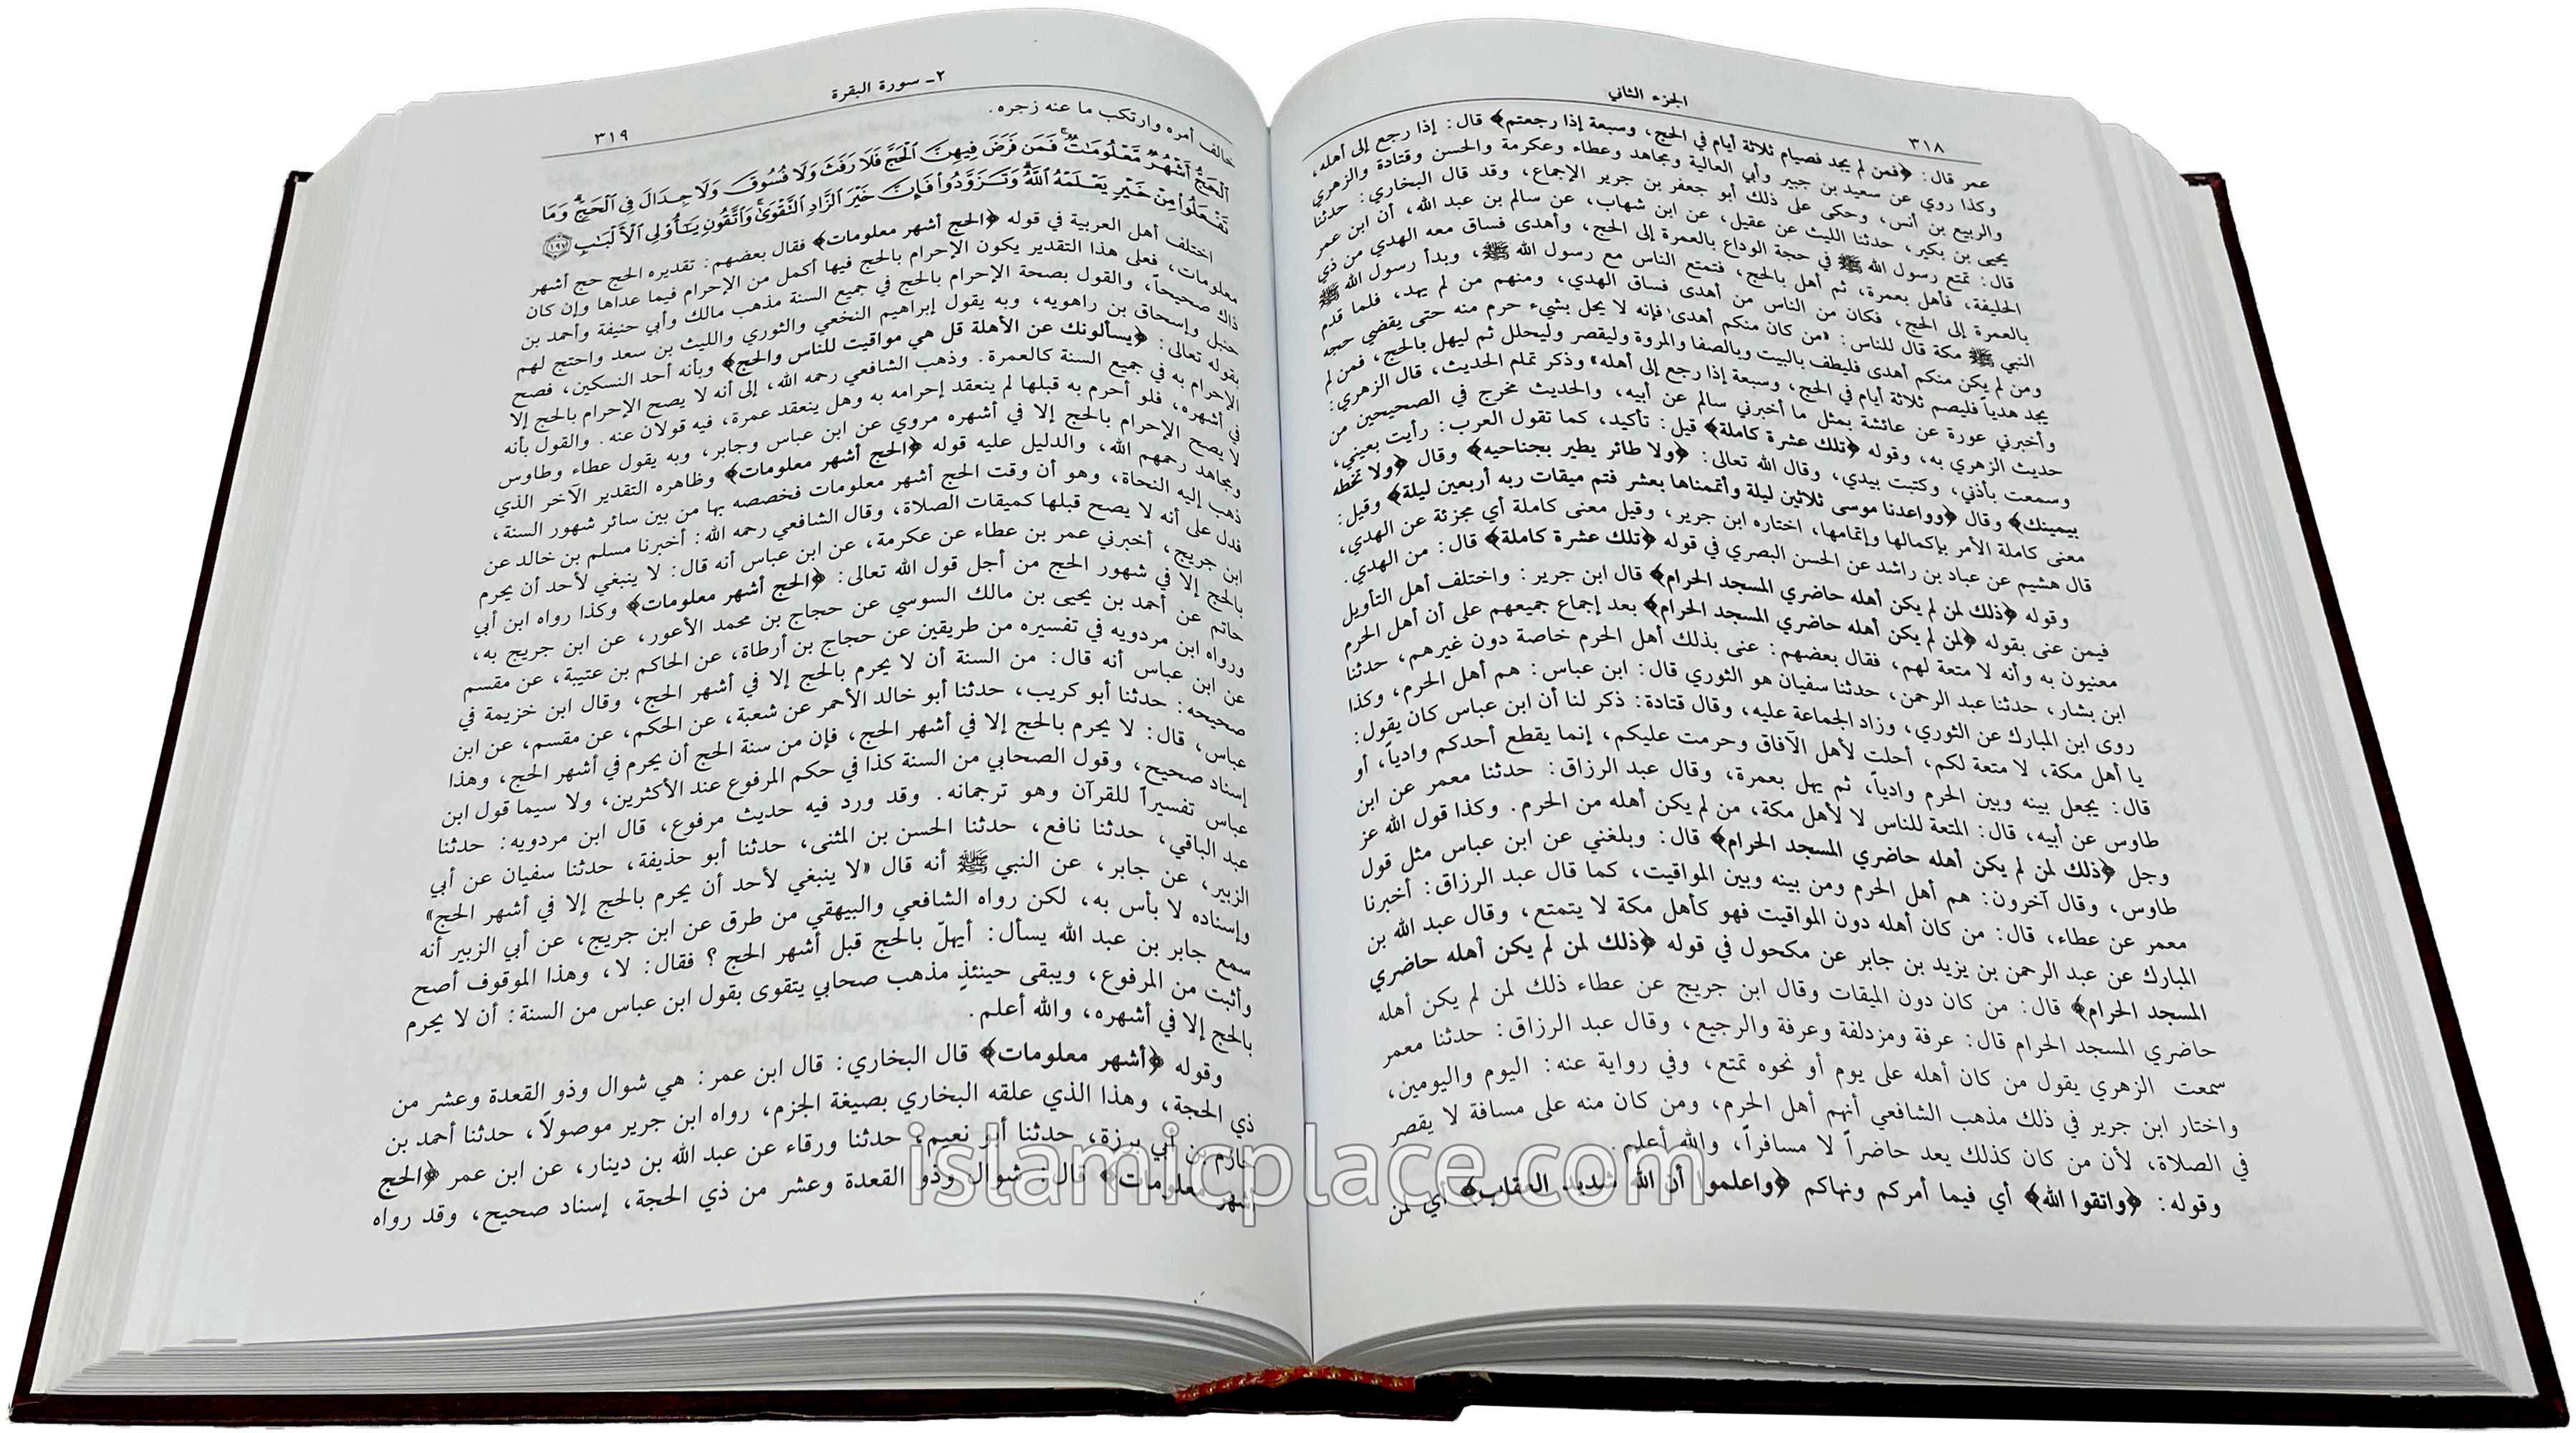 الجزء الثاني
٣١٨
عمر قال: ﴿فمن لم يجد فصيام ثلاثة أيام في الحج، وسبعة إذا رجعتم﴾ قال: إذا رجع إلى أهله،
وكذا روي عن سعيد بن جبير وأبي العالية ومجاهد وعطاء وعكرمة والحسن وقتادة والزهري
والربيع بن أنس، وحكى على ذلك أبو جعفر بن جرير الإجماع، وقد قال البخاري: حدثنا
يحيى بن بكير، حدثنا الليث عن عقيل، عن ابن شهاب، عن سالم بن عبد الله، أن ابن عمر
قال: تمتع رسول الله ﷺ في حجة الوداع بالعمرة إلى الحج، وأهدى فساق معه الهدي من ذي
الحليفة، فأهل بعمرة، ثم أهل بالحج، فتمتع الناس مع رسول الله ﷺ، وبدأ رسول الله ﷺ
بالعمرة إلى الحج، فكان من الناس من أهدى فساق الهدي، ومنهم من لم يهد، فلما قدم
النبي ﷺ مكة قال للناس: «من كان منكم أهدى فإنه لا يحل بشيء حرم منه حتى يقضي حجه
ومن لم يكن منكم أهدى فليطف بالبيت وبالصفا والمروة وليقصر وليحلل ثم ليهل بالحج، فمن لم
يجد هدياً فليصم ثلاثة أيام في الحج، وسبعة إذا رجع إلى أهله» وذكر تمام الحديث، قال الزهري:
وأخبرني عورة عن عائشة بمثل ما أخبرني سالم عن أبيه، والحديث مخرج في الصحيحين من
حديث الزهري به، وقوله ﴿تلك عشرة كاملة﴾ قيل: تأكيد، كما تقول العرب: رأيت بعيني،
وسمعت بأذني، وكتبت بيدي، وقال الله تعالى: ﴿ولا طائر يطير بجناحيه﴾ وقال ﴿ولا تخطه
بيمينك﴾ وقال ﴿وواعدنا موسى ثلاثين ليلة وأتممناها بعشر فتم ميقات ربه أربعين ليلة﴾ وقيل:
معنى كاملة الأمر بإكمالها وإتمامها، اختاره ابن جرير، وقيل معنى كاملة أي مجزئة عن الهدي،
قال هشيم عن عباد بن راشد عن الحسن البصري في قوله ﴿تلك عشرة كاملة﴾ قال: من الهدي.
وقوله ﴿ذلك لمن لم يكن أهله حاضري المسجد الحرام﴾ قال ابن جرير: واختلف أهل التأويل
فيمن عنى بقوله ﴿لمن لم يكن أهله حاضري المسجد الحرام﴾ بعد إجماع جميعهم على أن أهل الحرم
معنيون به وأنه لا متعة لهم، فقال بعضهم: عنى بذلك أهل الحرم خاصة دون غيرهم، حدثنا
ابن بشار، حدثنا عبد الرحمن، حدثنا سفيان هو الثوري قال: ابن عباس: هم أهل الحرم، وكذا
روى ابن المبارك عن الثوري، وزاد الجماعة عليه، وقال قتادة: ذكر لنا أن ابن عباس كان يقول:
يا أهل مكة، لا متعة لكم، أحلت لأهل الآفاق وحرمت عليكم، إنما يقطع أحدكم وادياً، أو
قال: يجعل بينه وبين الحرم وادياً، ثم يهل بعمرة، وقال عبد الرزاق: حدثنا معمر عن ابن
طاوس عن أبيه، قال: المتعة للناس لا لأهل مكة، من لم يكن أهله من الحرم. وكذا قول الله عز
وجل ﴿ذلك لمن لم يكن أهله حاضري المسجد الحرام﴾ قال: وبلغني عن ابن عباس مثل قول
طاوس، وقال آخرون: هم أهل الحرم ومن بينه وبين المواقيت، كما قال عبد الرزاق: أخبرنا
معمر عن عطاء، قال: من كان أهله دون المواقيت فهو كأهل مكة لا يتمتع، وقال عبد الله بن
المبارك عن عبد الرحمن بن يزيد بن جابر عن مكحول في قوله ﴿ذلك لمن لم يكن أهله حاضري
المسجد الحرام﴾ قال: من كان دون الميقات وقال ابن جريج عن عطاء ذلك لمن لم يكن أهله
حاضري المسجد الحرام قال: عرفة ومزدلفة وعرفة والرجيع، وقال عبد الرزاق: حدثنا معمر
سمعت الزهري يقول من كان أهله على يوم أو نحوه تمتع، وفي رواية عنه: اليوم واليومين،
واختار ابن جرير في ذلك مذهب الشافعي أنهم أهل الحرم، ومن كان منه على مسافة لا يقصر
في الصلاة، لأن من كان كذلك يعد حاضراً لا مسافراً، والله أعلم.
وقوله: ﴿واتقوا الله﴾ أي فيما أمركم ونهاكم ﴿واعلموا أن الله شديد العقاب﴾ أي لمن
٢ـ سورة البقرة
٣١٩
خالف أمره وارتكب ما عنه زجره.
ٱلْحَجُّ أَشْهُرٌ مَّعْلُومَٰتٌ ۚ فَمَن فَرَضَ فِيهِنَّ ٱلْحَجَّ فَلَا رَفَثَ وَلَا فُسُوقَ وَلَا جِدَالَ فِى ٱلْحَجِّ ۗ وَمَا
تَفْعَلُوا۟ مِنْ خَيْرٍ يَعْلَمْهُ ٱللَّهُ ۗ وَتَزَوَّدُوا۟ فَإِنَّ خَيْرَ ٱلزَّادِ ٱلتَّقْوَىٰ ۚ وَٱتَّقُونِ يَٰٓأُو۟لِى ٱلْأَلْبَٰبِ ١٩٧
اختلف أهل العربية في قوله ﴿الحج أشهر معلومات﴾ فقال بعضهم: تقديره الحج حج أشهر
معلومات، فعلى هذا التقدير يكون الإحرام بالحج فيها أكمل من الإحرام فيما عداها وإن كان
ذاك صحيحاً، والقول بصحة الإحرام بالحج في جميع السنة مذهب مالك وأبي حنيفة وأحمد بن
حنبل وإسحاق بن راهويه، وبه يقول إبراهيم النخعي والثوري والليث بن سعد واحتج لهم
بقوله تعالى: ﴿يسألونك عن الأهلة قل هي مواقيت للناس والحج﴾ وبأنه أحد النسكين، فصح
الإحرام به في جميع السنة كالعمرة. وذهب الشافعي رحمه الله، إلى أنه لا يصح الإحرام بالحج إلا
في أشهره، فلو أحرم به قبلها لم ينعقد إحرامه به وهل ينعقد عمرة، فيه قولان عنه. والقول بأنه
لا يصح الإحرام بالحج إلا في أشهره مروي عن ابن عباس وجابر، وبه يقول عطاء وطاوس
ومجاهد رحمهم الله، والدليل عليه قوله ﴿الحج أشهر معلومات﴾ وظاهره التقدير الآخر الذي
ذهب إليه النحاة، وهو أن وقت الحج أشهر معلومات فخصصه بها من بين سائر شهور السنة،
فدل على أنه لا يصح قبلها كميقات الصلاة، وقال الشافعي رحمه الله: أخبرنا مسلم بن خالد عن
ابن جريج، أخبرني عمر بن عطاء عن عكرمة، عن ابن عباس أنه قال: لا ينبغي لأحد أن يحرم
بالحج إلا في شهور الحج من أجل قول الله تعالى: ﴿الحج أشهر معلومات﴾ وكذا رواه ابن أبي
حاتم عن أحمد بن يحيى بن مالك السوسي عن حجاج بن محمد الأعور، عن ابن جريج به،
ورواه ابن مردويه في تفسيره من طريقين عن حجاج بن أرطاة، عن الحاكم بن عتيبة، عن مقسم
عن ابن عباس أنه قال: من السنة أن لا يحرم بالحج إلا في أشهر الحج، وقال ابن خزيمة في
صحيحه: حدثنا أبو كريب، حدثنا أبو خالد الأحمر عن شعبة، عن الحكم، عن مقسم، عن ابن
عباس، قال: لا يحرم بالحج إلا في أشهر الحج، فإن من سنة الحج أن يحرم في أشهر الحج، وهذا
إسناد صحيح، وقول الصحابي من السنة كذا في حكم المرفوع عند الأكثرين، ولا سيما قول ابن
عباس تفسيراً للقرآن وهو ترجمانه. وقد ورد فيه حديث مرفوع، قال ابن مردويه: حدثنا
عبد الباقي، حدثنا نافع، حدثنا الحسن بن المثنى، حدثنا أبو حذيفة، حدثنا سفيان عن أبي
الزبير، عن جابر، عن النبي ﷺ أنه قال «لا ينبغي لأحد أن يحرم بالحج إلا في أشهر الحج»
وإسناده لا بأس به، لكن رواه الشافعي والبيهقي من طرق عن ابن جريج، عن أبي الزبير أنه
سمع جابر بن عبد الله يسأل: أيهلّ بالحج قبل أشهر الحج؟ فقال: لا، وهذا الموقوف أصح
وأثبت من المرفوع، ويبقى حينئذٍ مذهب صحابي يتقوى بقول ابن عباس من السنة: أن لا يحرم
بالحج إلا في أشهره، والله أعلم.
وقوله ﴿أشهر معلومات﴾ قال البخاري: قال ابن عمر: هي شوال وذو القعدة وعشر من
ذي الحجة، وهذا الذي علقه البخاري بصيغة الجزم، رواه ابن جرير موصولاً، حدثنا أحمد بن
حازم بن أبي برزة، حدثنا أبو نعيم، حدثنا ورقاء عن عبد الله بن دينار، عن ابن عمر ﴿الحج
شهر معلومات﴾ قال: شوال وذو القعدة وعشر من ذي الحجة، إسناد صحيح، وقد رواه
islamicplace.com